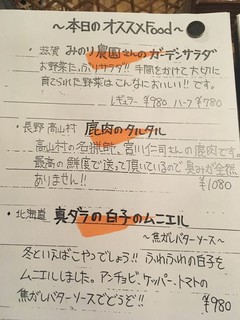 ～本日のオススメFood～
・滋賀 みのり農園さんのガーデンサラダ
お野菜たっぷりサラダ!! 手間をかけて大切に
育てられた野菜はこんなにおいしい!! です。
レギュラー ¥980 ハーフ ¥780
・長野 高山村 鹿肉のタルタル
高山村の名猟師、宮川仁司さんの鹿肉です。
最高の鮮度で送って頂いているので臭みが全然
ありません!! ¥1080
・北海道 真ダラの白子のムニエル
～焦がしバターソース～
冬といえばこやつでしょう!! ふわふわの白子を
ムニエルしました。アンチョビ、ケッパー、トマトの
焦がしバターソースでどうぞ!! ¥980